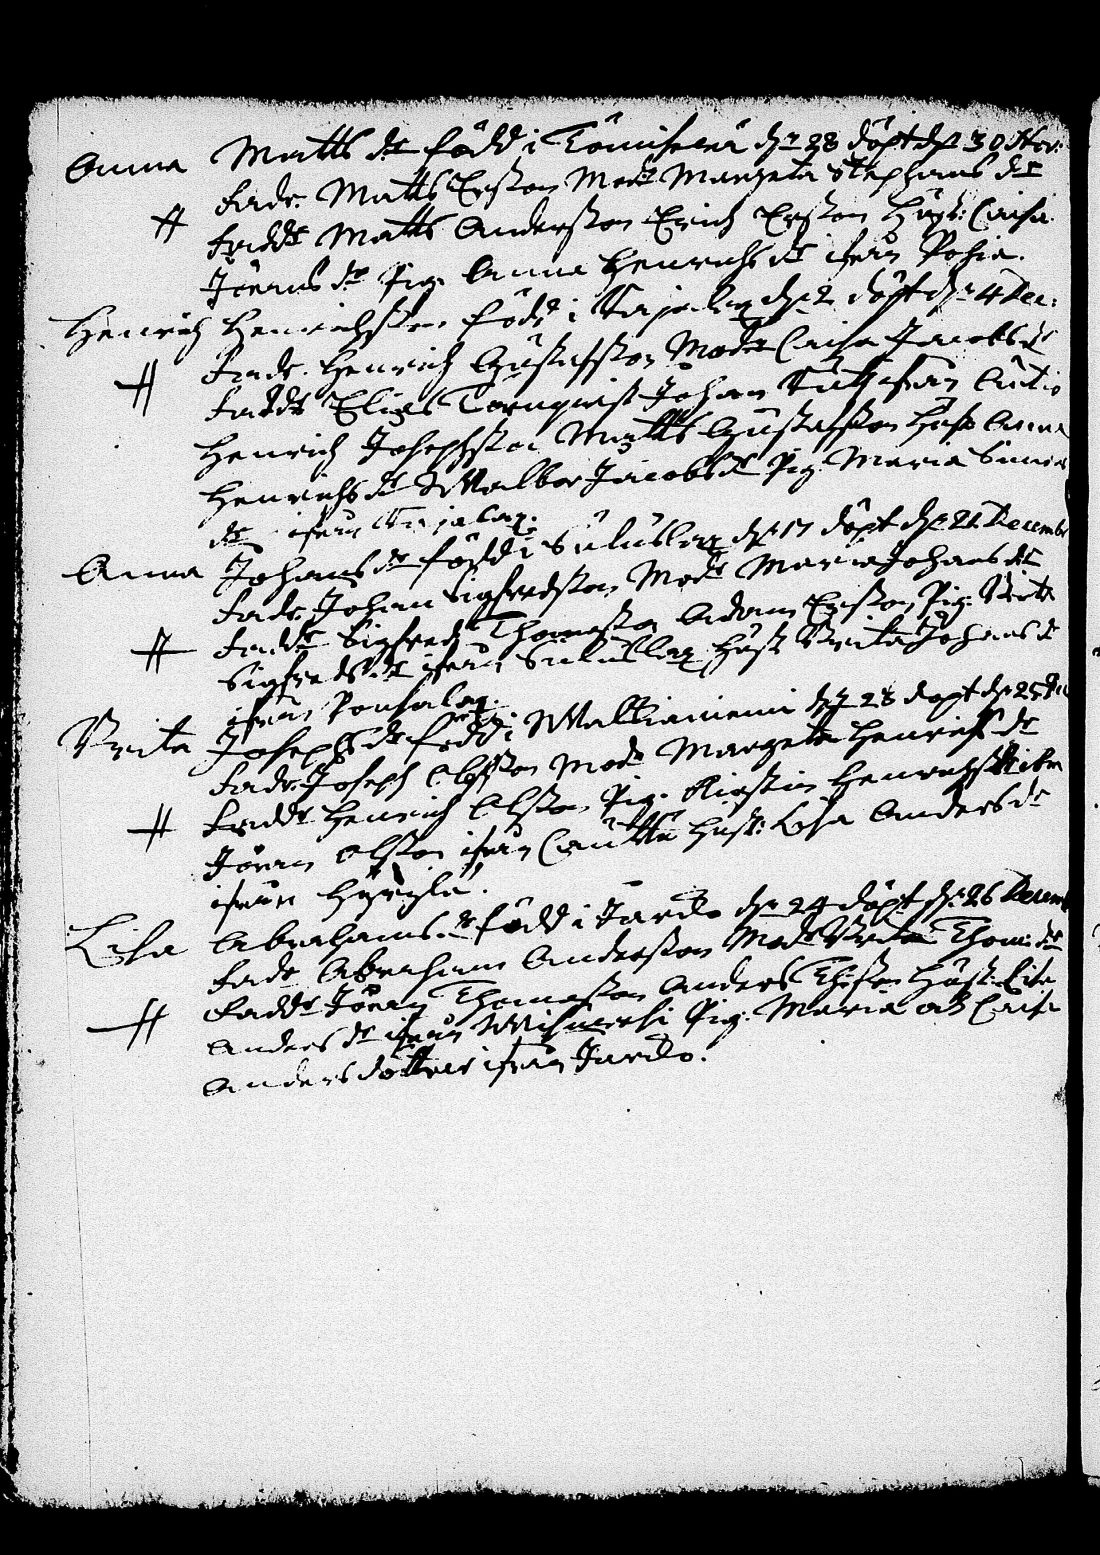 Anna Matts dr född i Tömiserä dn 28 döpt dn 30 Nov:
Fadr. Matts Ersson Modr Margeta Stephans dr
Faddr Matts Andersson Erich Ersson Hust: Caisa
Jörans dr Pig. Anna Henrichs dr ifrån Pohia.
Henrich Henrichsson född i dn 2 döpt dn 4 Dec:
Fadr. Henrich Gustafsson Modr Caisa Jacobs dr
Faddr Elias Tornqvist Johan ifrån Autio
Henrich Josephsson Matts Gustafsson Hust Anna
Henrichs dr Walbor Jacobs dr Pig. Maria Simons
dr ifrån
Anna Johans dr född i Suluslax dn 17 döpt dn 21 Decembr
Fadr. Johan Sigfredsson Modr Maria Johans dr
Faddr Sigfred Thomasson Adam Ersson Pig. Brita
Sigfreds dr ifrån Suluslax Hust Brita Johans dr
ifrån Ponsalax.
Brita Josephs dr född i Walkianiemi dn 23 döpt dn 25
Fadr. Joseph Olsson Modr Margeta Henrichs dr
Faddr Henrich Olsson Pig. Kirstin Henrichs dr
Jöran Olsson ifrån Cauttu Hust: Lisa Anders dr
ifrån Hyrylä.
Lisa Abrahams dr född i Jardo dn 24 döpt dn 26 Decemb
Fadr Abraham Andersson Modr Brita Thom: dr
Faddr Jöran Thomasson Anders Hust: Lisa
Anders dr ifrån Pig. Maria och Caisa
Anders döttrar ifrån Jardo.